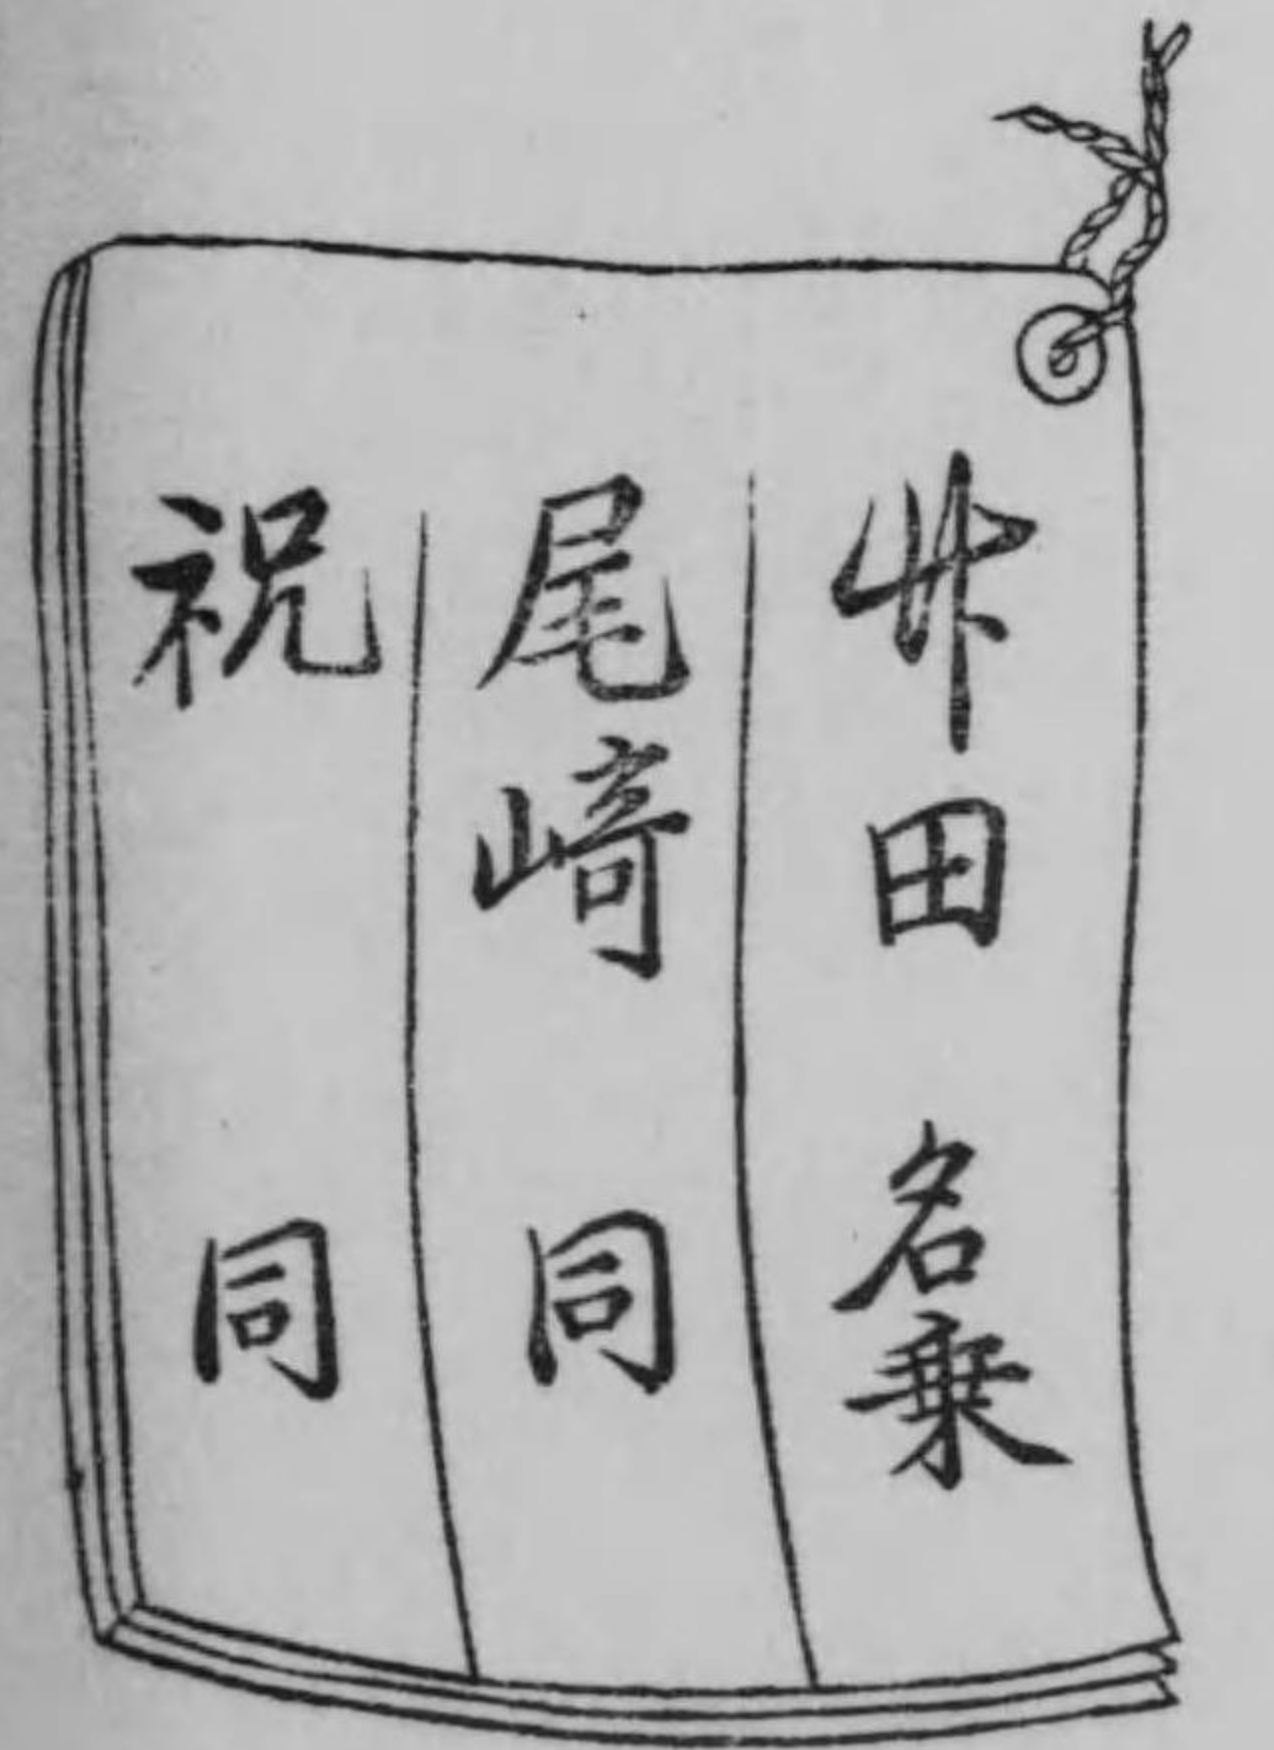 田 名乗
尾崎 同
祝 同